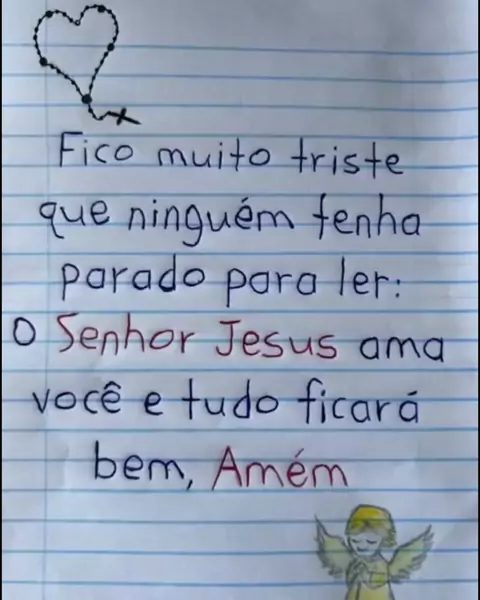 Fico muito triste
que ninguém tenha
parado para ler:
o Senhor Jesus ama
você e tudo ficará
bem, Amém